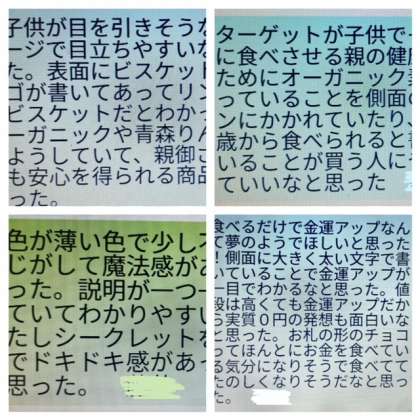 子供が目を引きそうな
ージで目立ちやすいな
た。表面にビスケット
ゴが書いてあってリン
ビスケットだとわかっ
ーガニックや青森りん
ようしていて、親御さ
も安心を得られる商品
った。
ターゲットが子供で一
に食べさせる親の健康
ためにオーガニックを
っていることを側面の
ンにかかれていたり、
歳から食べられると書
いることが買う人に
ていいなと思った
色が薄い色で少し不
じがして魔法感があ
った。説明が一つ一
ていてわかりやすい
たしシークレットな
でドキドキ感があっ
思った。
食べるだけで金運アップなん
て夢のようでほしいと思った
！側面に大きく太い文字で書
いていることで金運アップが
一目でわかるなと思った。値
段は高くても金運アップだか
ら実質０円の発想も面白いな
と思った。お札の形のチョコ
ってほんとにお金を食べてい
る気分になりそうで食べてて
たのしくなりそうだなと思っ
た。